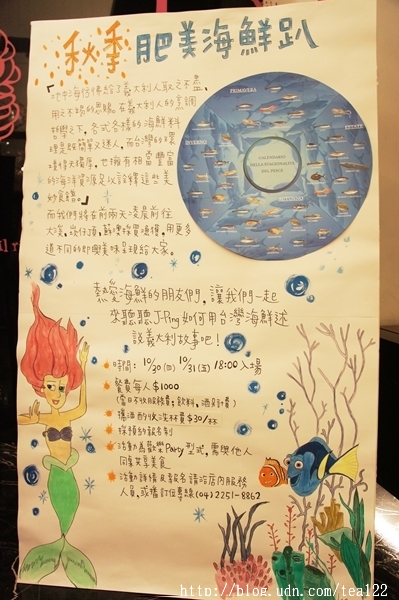 秋季 肥美海鮮趴
「地中海彷彿給了義大利人取之不盡、
用之不竭的恩賜。在義大利人的烹調
哲學之下, 各式各樣的海鮮料
理是既簡單又迷人, 而台灣的環
境得天獨厚, 也擁有相當豐富
的海洋資源足以詮釋這些美
妙食譜。」
而我們將在前兩天凌晨前往
大溪, 崁仔頂, 蘇澳採買漁獲, 用更多
道不同的即興美味呈現給大家。
PRIMAVERA
CALENDARIO
DELLA STAGIONALITÀ
DEL PESCE
熱愛海鮮的朋友們, 讓我們一起
來聽聽J-Ping 如何用台灣海鮮述
說義大利故事吧!
時間: 10/30(日) 10/31(五) 18:00 入場
餐費每人$1000
(當日不收服務費; 飲料, 酒另計費)
攜酒酌收洗杯費$30/杯
採預約報名制
活動為歡樂Party型式, 需與他人
同桌共享美食
活動詳情及報名請洽店內服務
人員, 或播訂位專線(04)2251-8862
http://blog.udn.com/tea122